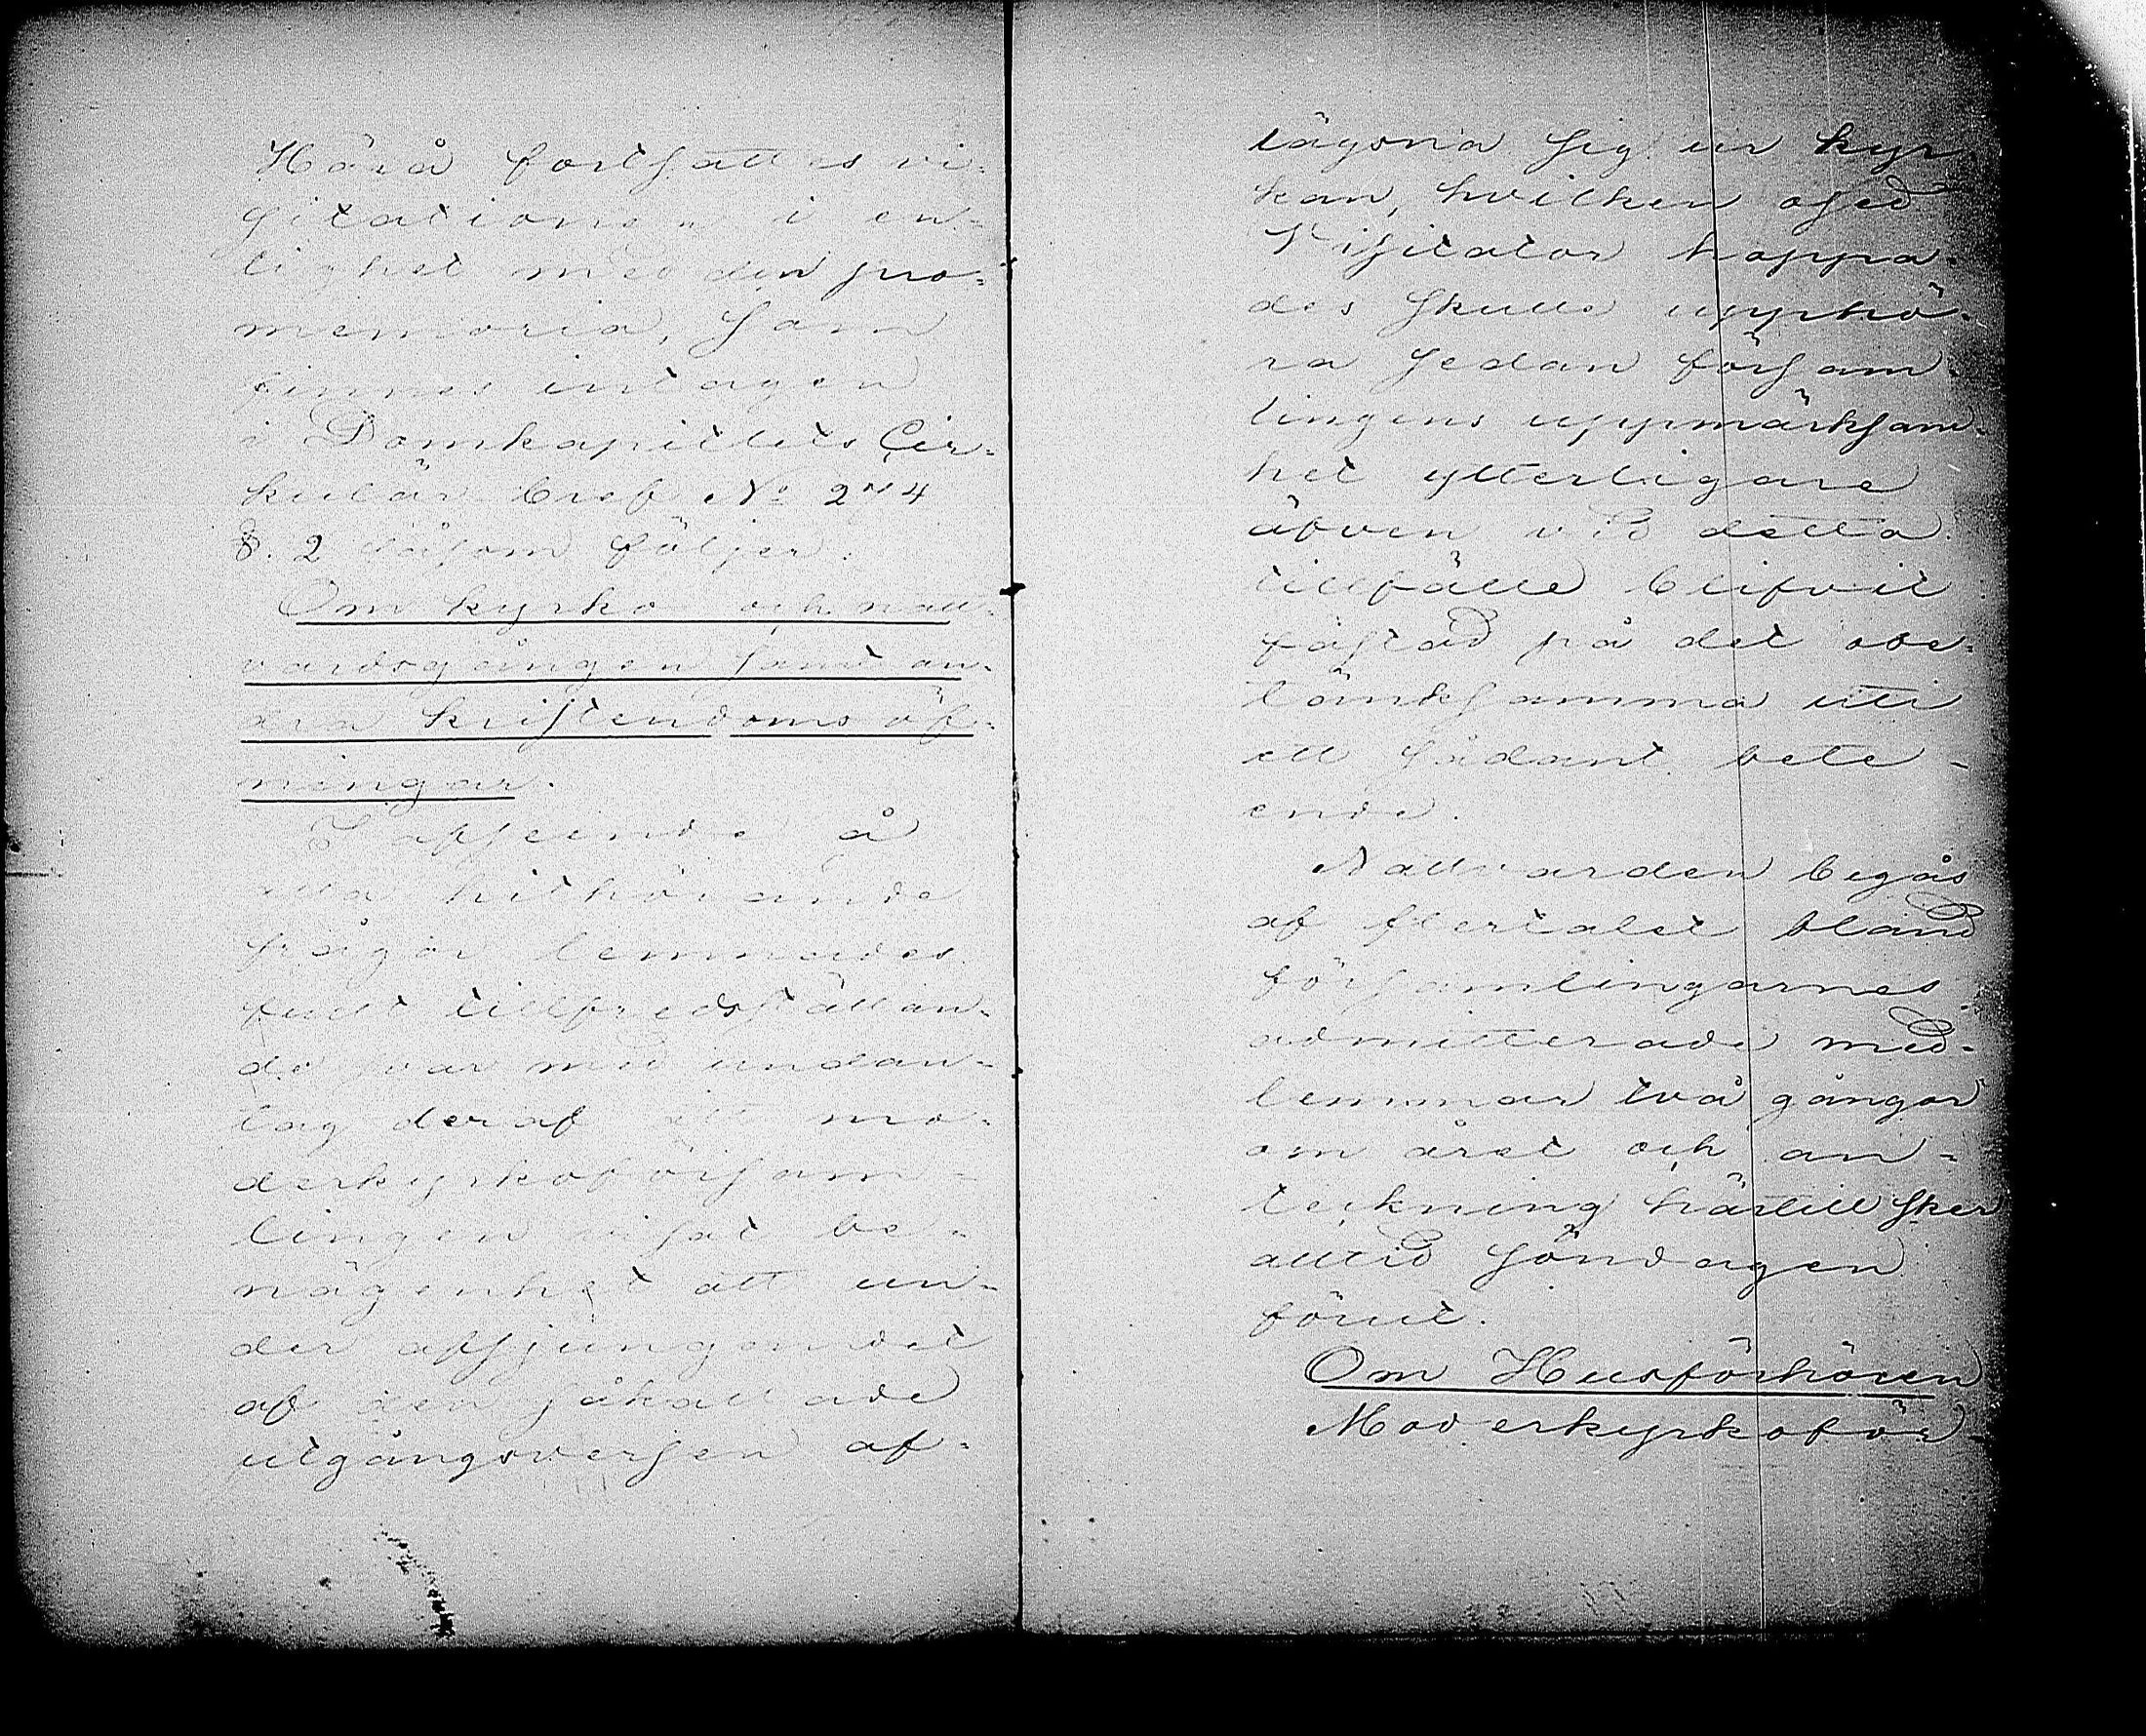 Härå fortsattes vi-
sitationen i en-
lighet med den pro-
memoria, som
finnes intagen
i Domkapitlets Cir-
kulär bref No 274
§. 2 såsom följer.
Om kyrko och natt-
vardsgången samt an-
dra kristendomsöf-
ningar.
I afseende å
alla hithörande
frågor lemnades
fullt tillfredställan-
de svar med undan-
tag deraf att mo-
derkyrkoförsam-
lingen visat be-
nägenhet att un-
der afsjungandet
af den såkallade
utgångsversen af-
lägsna sig ur kyr
kan, hvilken osed
Visitator hoppa-
des skulle upphö-
ra sedan försam-
lingens uppmärksam-
het ytterligare
äfven vid detta
tillfälle blifvit
fästad på det obe-
tänksamma uti
ett sådant bete-
ende.
Nattvarden begås
af flertalet bland
församlingarnes
admitterade med-
lemmar två gångar
om året och an-
teckning härtill sker
alltid söndagen
förut.
Om Husförhören
Moderkyrkoför-